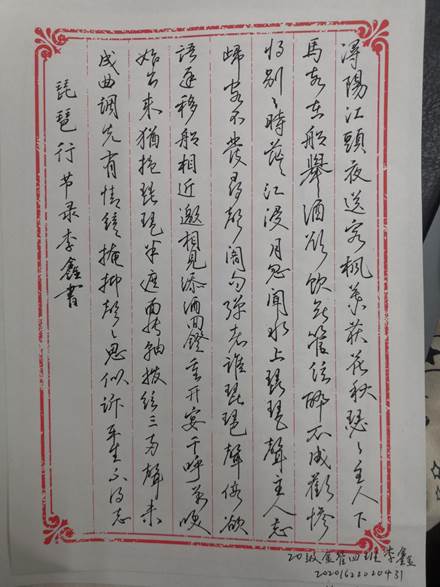 潯陽江頭夜送客楓葉荻花秋瑟々主人下
馬客在船舉酒欲飲無管弦醉不成歡慘
將別々時茫江浸月忽聞水上琵琶聲主人忘
歸客不發尋聲闇問彈者誰琵琶聲停欲
語遲移船相近邀相見添酒回燈重開宴千呼萬喚
始出來猶抱琵琶半遮面轉軸撥弦三两聲未
成曲調先有情弦掩抑聲々思似訴平生不得志
琵琶行节录李鑫書
20级金管四班李鑫